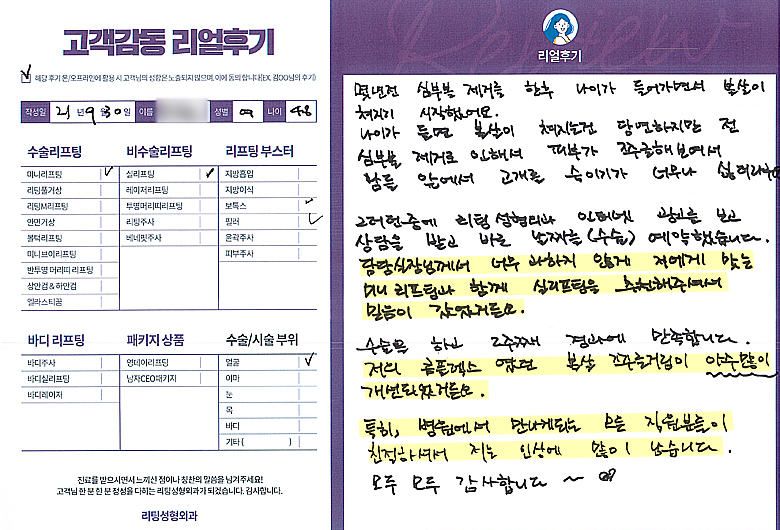 고객감동 리얼후기
해당 후기 온/오프라인에 활용 시 고객님의 성함은 노출되지 않으며, 이에 동의 합니다(EX. 김OO님의 후기)
작성일 21년 9월 30일 이름 성별 여 나이 48
수술리프팅
미니리프팅
리팅풀거상
리팅M리프팅
안면거상
볼턱리프팅
미니브이리프팅
반투명 머리띠 리프팅
상안검 & 하안검
엘라스티꿈
비수술리프팅
실리프팅
레이저리프팅
투명머리띠리프팅
리팅주사
베네핏주사
리프팅 부스터
지방흡입
지방이식
보톡스
필러
윤곽주사
피부주사
바디 리프팅
바디주사
바디실리프팅
바디레이저
패키지 상품
언데이리프팅
남자CEO패키지
수술/시술 부위
얼굴
이마
눈
목
바디
기타 ( )
진료를 받으시면서 느끼신 점이나 칭찬의 말씀을 남겨주세요!
고객님 한 분 한 분 정성을 다하는 리팅성형외과가 되겠습니다. 감사합니다.
리팅성형외과
Review
리얼후기
몇년전 심부볼 제거를 한후 나이가 들어가면서 볼살이
쳐지기 시작했어요.
나이가 들면 볼살이 쳐지는건 당연하지만 전
심부볼 제거로 인해서 피부가 쪼글해보여서
남들 앞에서 고개를 숙이기가 너무나 싫더라구요
그러던중에 리팅성형외과 인터넷 광고를 보고
상담을 받고 바로 날짜를 (수술) 예약했습니다.
담당실장님께서 너무 과하지 않게 저에게 맞는
미니리프팅과 함께 실리프팅을 추천해주셔서
믿음이 갔었거든요.
수술을 하고 2주째 경과에 만족합니다.
저의 콤플렉스 였던 볼살 쪼글거림이 아주많이
개선되었거든요.
특히, 병원에서 만나게되는 모든 직원분들이
친절하셔서 저는 인상에 많이 남습니다.
모두 모두 감사합니다 ~